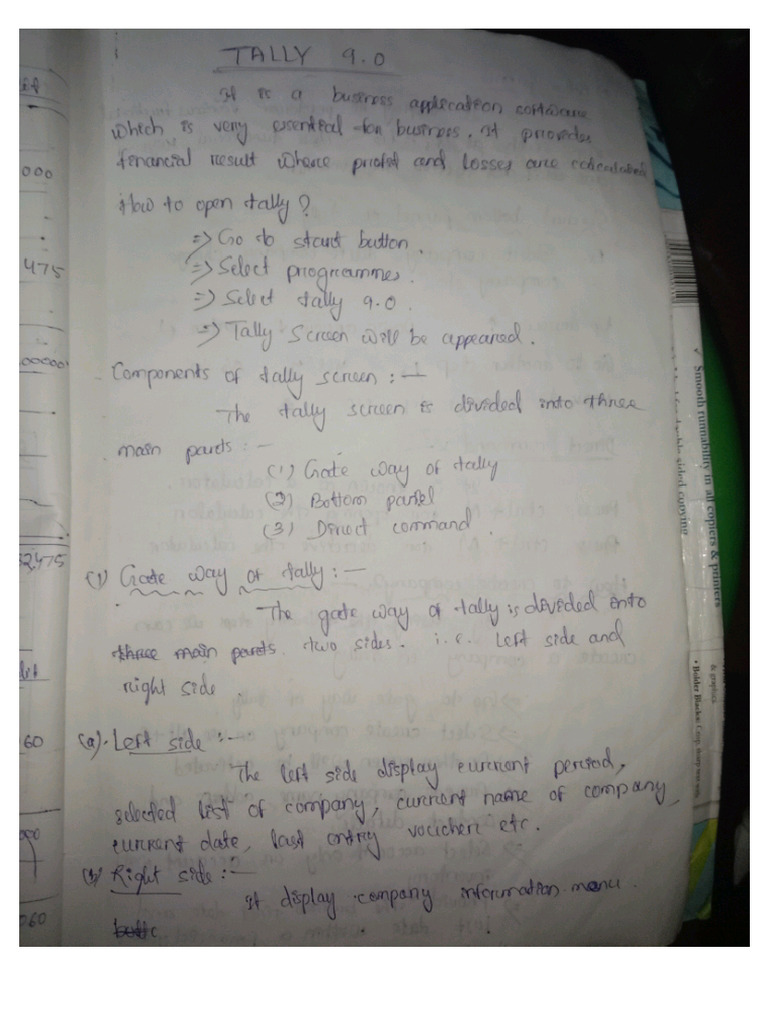 TALLY 9.0
It is a business application software
which is very essential for business. It provides
financial result where profit and losses are calculated
How to open tally?
=> Go to start button.
=> Select programmes.
=> Select tally 9.0.
=> Tally Screen will be appeared.
Components of tally screen :-
The tally screen is divided into three
main parts :-
(1) Gate way of tally
(2) Bottom panel
(3) Direct command.
(1) Gate way of tally :-
The gate way of tally is divided into
three main parts. two sides. i.e. left side and
right side.
(a). Left side :-
The left side display current period,
selected list of company, current name of company,
current date, last entry voucher etc.
(b) Right side :-
It display company information menu.
000
475
00000
32,475
60
000
060
✓ Smooth runnability in all copiers & printers
double sided copying
& graphics
• Bolder Blacks